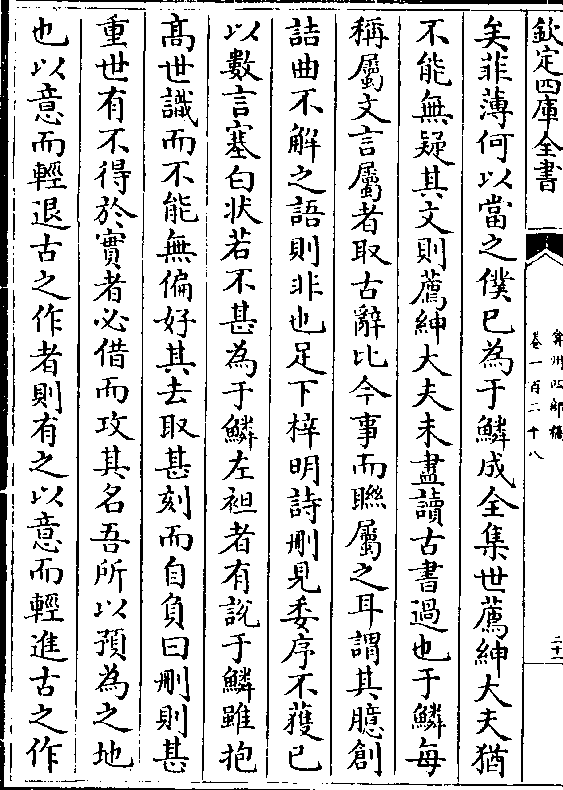 欽定四庫全書
弇州四部稿
卷一百二十八
二十一
矣菲薄何以當之僕已為于鱗成全集世薦紳大夫猶
不能無疑其文則薦紳大夫未盡讀古書過也于鱗每
稱屬文言屬者取古辭比今事而聯屬之耳謂其臆創
詰曲不解之語則非也足下梓明詩刪見委序不獲已
以數言塞白狀若不甚為于鱗左袒者有說于鱗雖抱
髙世識而不能無偏好其去取甚刻而自負曰刪則甚
重世有不得於實者必借而攻其名吾所以預為之地
也以意而輕退古之作者則有之以意而輕進古之作